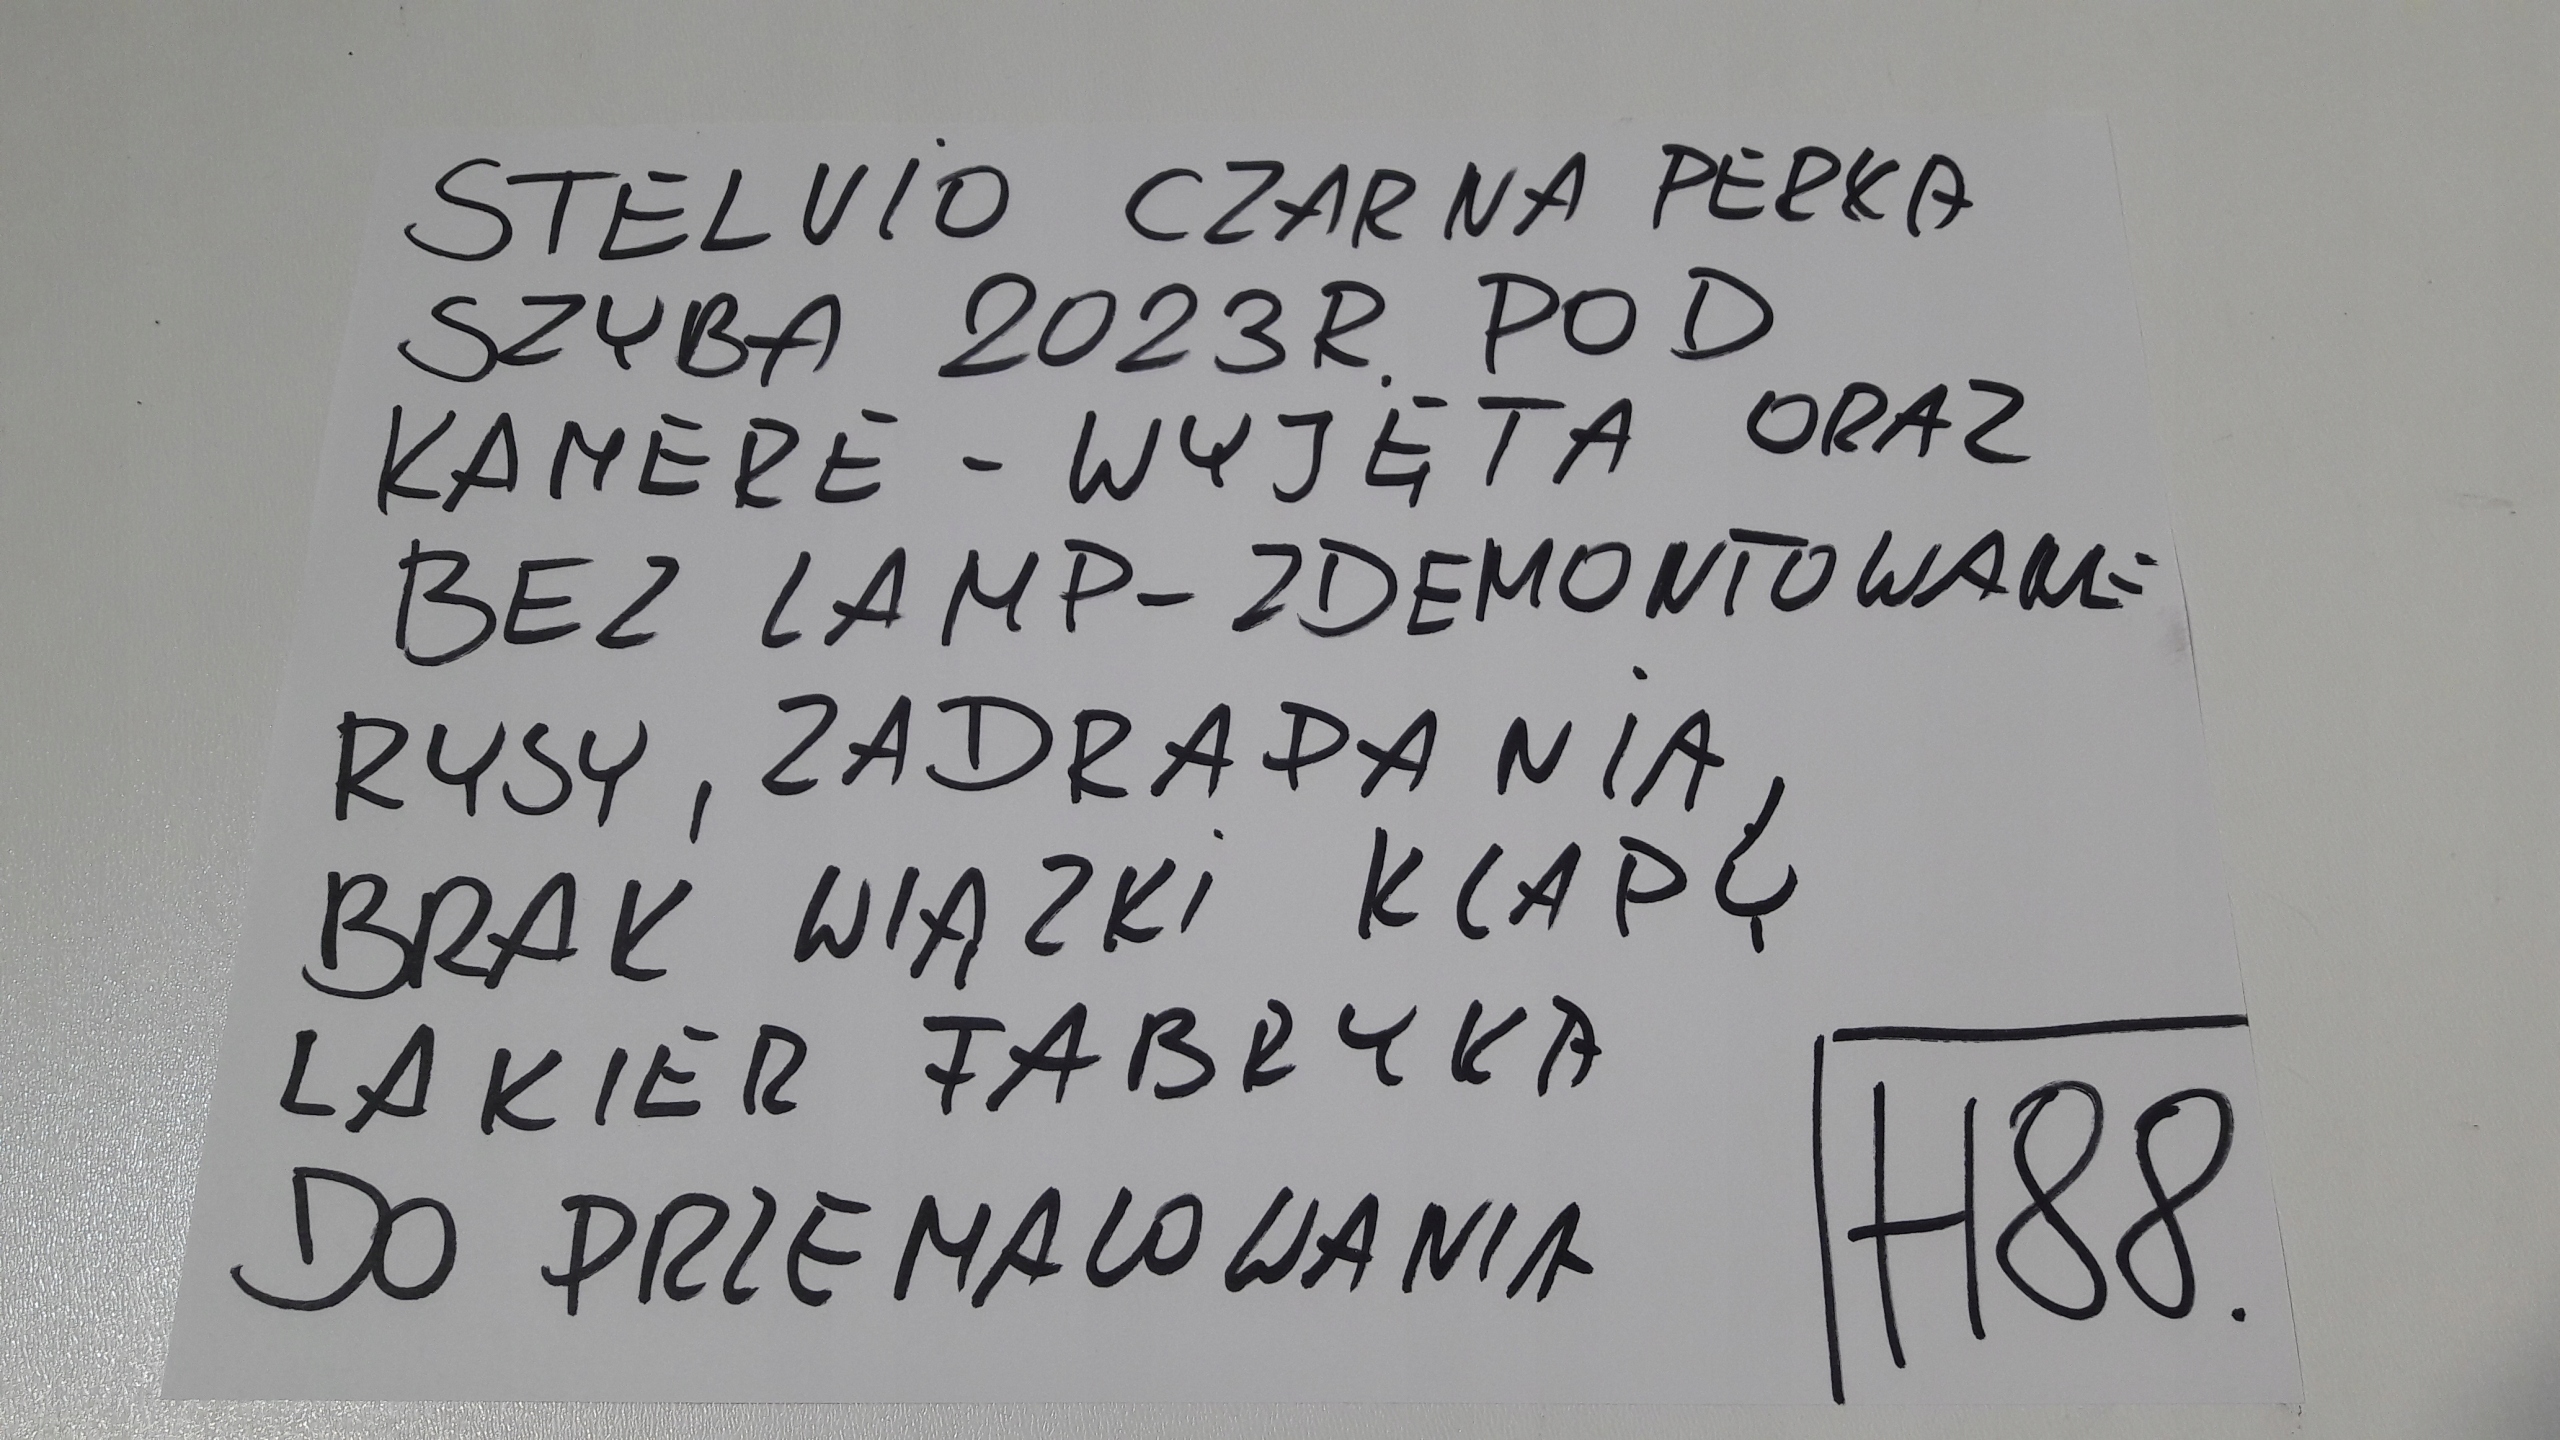 STELVIO CZARNA PERKA
SZYBA 2023R. POD
KAMERE - WYJĘTA ORAZ
BEZ LAMP - ZDEMONTOWANE
RYSY, ZADRAPANIA,
BRAK WIĄZKI KLAPY
LAKIER FABRYKA
DO PRZEMALOWANIA
H88.